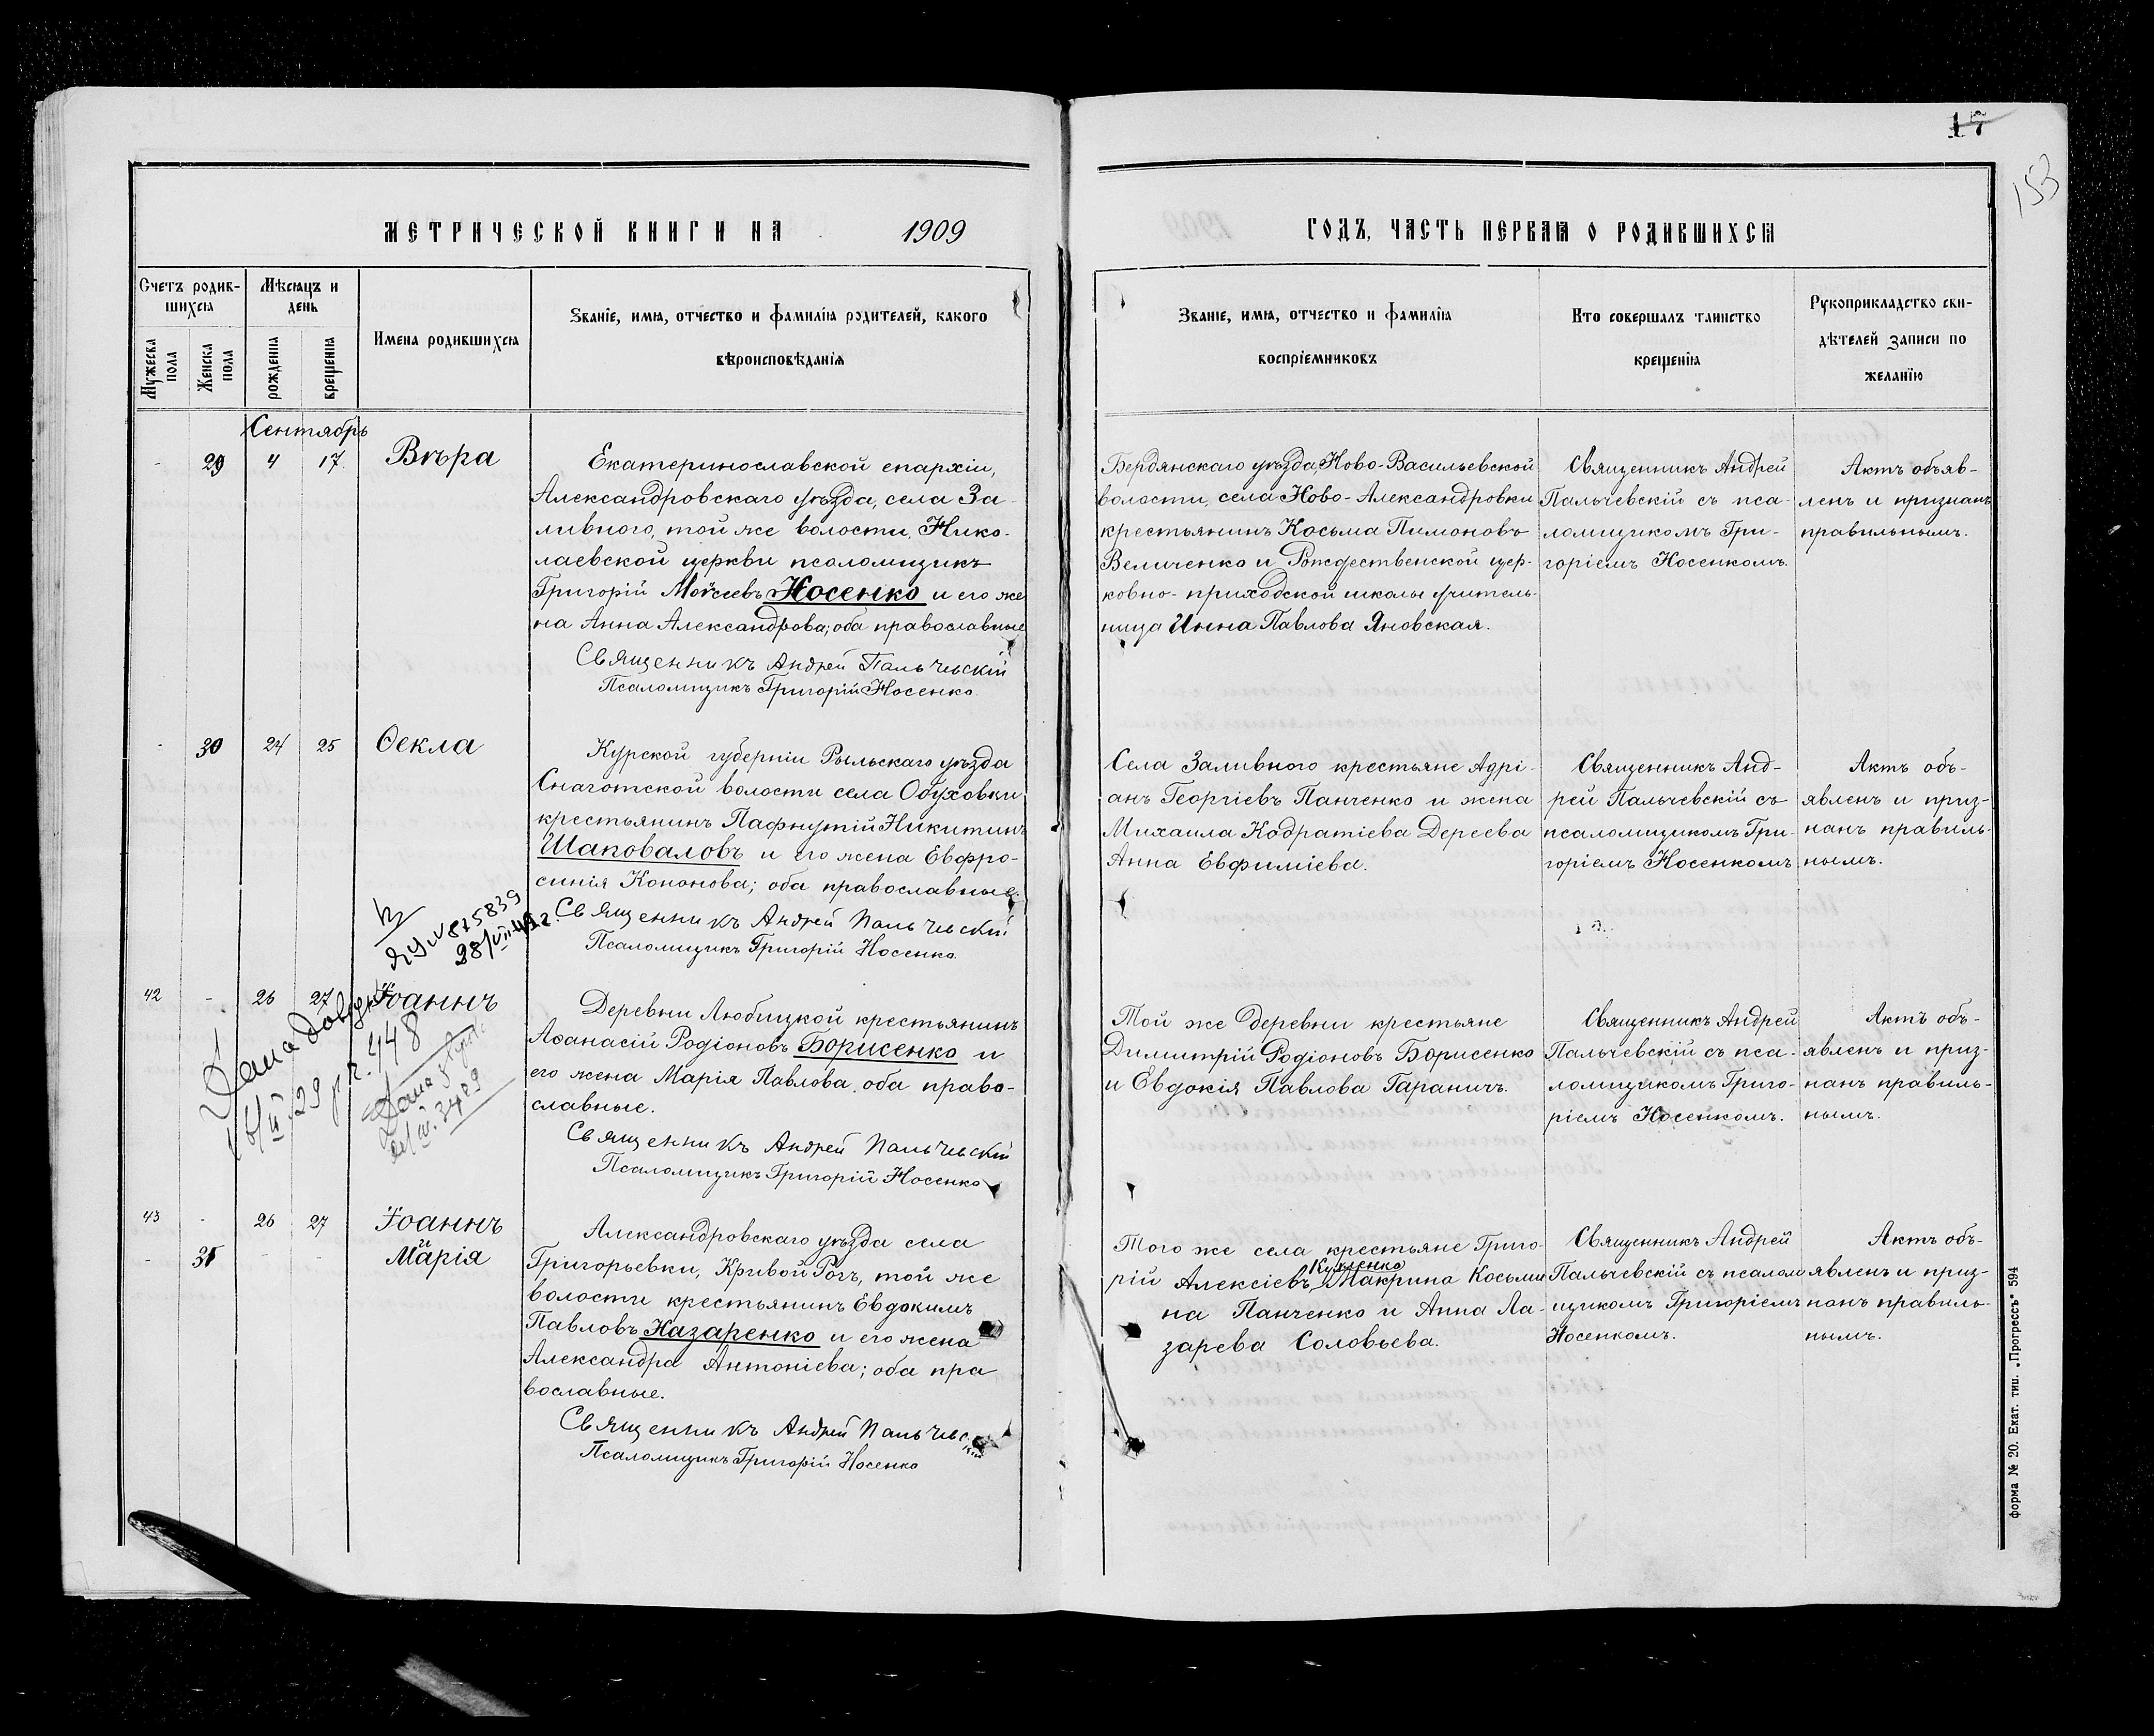 17
153
МЕТРИЧЕСКОЙ КНИГИ НА 1909
ГОДЪ, ЧАСТЬ ПЕРВАЯ О РОДИВШИХСЯ
Счетъ родив-
шихся
Мѣсяцъ и
день
Мужеска
пола
Женска
пола
рожденія
крещенія
Имена родившихся
Званіе, имя, отчество и фамилія родителей, какого
вѣроисповѣданія
Званіе, имя, отчество и фамилія
воспріемниковъ
Кто совершалъ таинство
крещенія
Рукоприкладство сви-
дѣтелей записи по
желанію
Сентябрь
- 29 4 17 Вѣра
Екатеринославской епархіи,
Александровскаго уѣзда, села За-
ливного, той же волости, Нико-
лаевской церкви псаломщикъ
Григорій Моѵсеевъ Носенко и его же
на Анна Александрова; оба православные
Священникъ Андрей Пальчевскій
Псаломщикъ Григорій Носенко.
Бердянскаго уѣзда Ново-Васильевской
волости, села Ново-Александровки
крестьянинъ Косьма Пимоновъ
Величенко и Рождественской цер-
ковно-приходской школы учитель-
ница Инна Павлова Яновская.
Священникъ Андрей
Пальчевскій съ пса-
ломщикомъ Гри-
горіемъ Носенкомъ.
Актъ объяв-
ленъ и признанъ
правильнымъ.
- 30 24 25 Ѳекла
Курской губерніи Рыльскаго уѣзда
Снаготской волости села Обуховки
крестьянинъ Пафнутій Никитинъ
Шаповаловъ и его жена Евфро-
синія Кононова; оба православные.
Священникъ Андрей Пальчевскій
Псаломщикъ Григорій Носенко.
Села Заливного крестьяне Адрі-
анъ Георгіевъ Панченко и жена
Михаила Кодратіева Дереева
Анна Евфиміева.
Священникъ Анд-
рей Пальчевскій съ
псаломщикомъ Гри-
горіемъ Носенкомъ
Актъ объ-
явленъ и приз-
нанъ правиль-
нымъ.
№ 875839
28/VII-49 г.
42 - 26 27 Іоаннъ
Дана
448
Дана
3489
Деревни Любицкой крестьянинъ
Аѳанасій Родіоновъ Борисенко и
его жена Марія Павлова, оба право-
славные.
Священникъ Андрей Пальчевскій
Псаломщикъ Григорій Носенко
Той же деревни крестьяне
Димитрій Родіоновъ Борисенко
и Евдокія Павлова Гараничъ.
Священникъ Андрей
Пальчевскій съ пса-
ломщикомъ Григо-
ріемъ Носенкомъ.
Актъ объ-
явленъ и приз-
нанъ правиль-
нымъ.
43 - 26 27 Іоаннъ
и
- 31 - - Марія
Александровскаго уѣзда села
Григорьевки, Кривой Рогъ, той же
волости крестьянинъ Евдокимъ
Павловъ Назаренко и его жена
Александра Антоніева; оба пра
вославные.
Священникъ Андрей Пальчевскій
Псаломщикъ Григорій Носенко
Того же села крестьяне Григо-
рій Алексіевъ, Макрина Косьми
на Панченко и Анна Ла-
зарева Соловьева.
Священникъ Андрей
Пальчевскій съ псалом
щикомъ Григоріемъ
Носенкомъ.
Актъ объ-
явленъ и приз-
нанъ правиль-
нымъ.
Форма № 20. Екат. тип. „Прогрессъ" 594